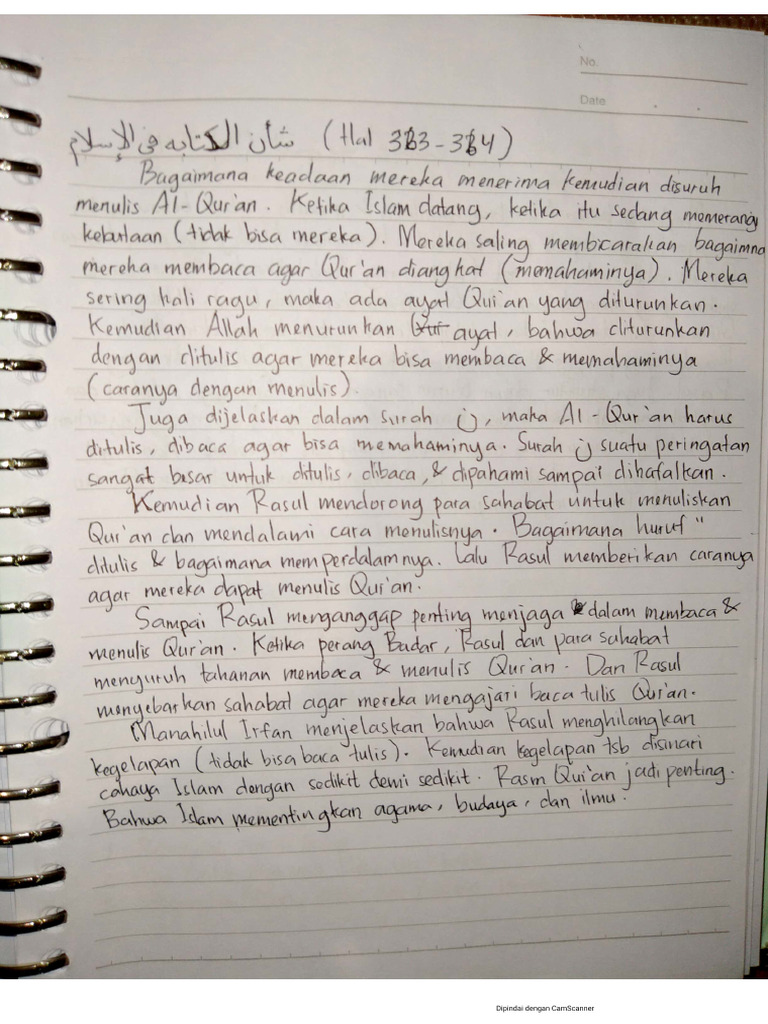 No.
Date
شأن الكتابه في الإسلام (Hal 363-364)
Bagaimana keadaan mereka menerima kemudian disuruh
menulis Al-Qur'an. Ketika Islam datang, ketika itu sedang memerangi
kebutaan (tidak bisa mereka). Mereka saling membicarakan bagaimna
mereka membaca agar Qur'an diangkat (memahaminya). Mereka
sering kali ragu, maka ada ayat Qur'an yang diturunkan.
Kemudian Allah menurunkan ayat, bahwa diturunkan
dengan ditulis agar mereka bisa membaca & memahaminya
(caranya dengan menulis).
Juga dijelaskan dalam surah ن, maka Al-Qur'an harus
ditulis, dibaca agar bisa memahaminya. Surah ن suatu peringatan
sangat besar untuk ditulis, dibaca, & dipahami sampai dihafalkan.
Kemudian Rasul mendorong para sahabat untuk menuliskan
Qur'an dan mendalami cara menulisnya. Bagaimana huruf"
ditulis & bagaimana memperdalamnya. Lalu Rasul memberikan caranya
agar mereka dapat menulis Qur'an.
Sampai Rasul menganggap penting menjaga dalam membaca &
menulis Qur'an. Ketika perang Badar, Rasul dan para sahabat
menyuruh tahanan membaca & menulis Qur'an. Dan Rasul
menyebarkan sahabat agar mereka mengajari baca tulis Qur'an.
Manahilul Irfan menjelaskan bahwa Rasul menghilangkan
kegelapan (tidak bisa baca tulis). Kemudian kegelapan tsb disinari
cahaya Islam dengan sedikit demi sedikit. Rasm Qur'an jadi penting.
Bahwa Islam mementingkan agama, budaya, dan ilmu.
Dipindai dengan CamScanner